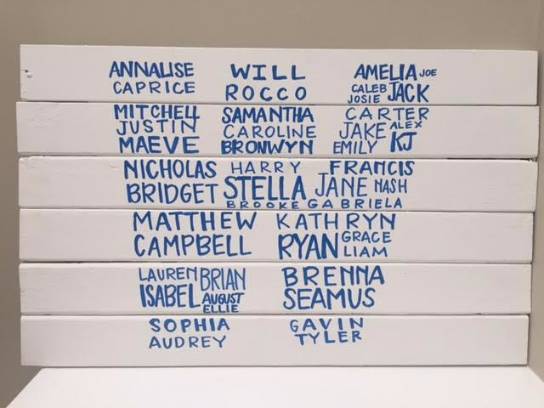 ANNALISE WILL AMELIA JOE
CAPRICE ROCCO CALEB JOSIE JACK
MITCHELL SAMANTHA CARTER
JUSTIN CAROLINE JAKE ALEX
MAEVE BRONWYN EMILY KJ
NICHOLAS HARRY FRANCIS
BRIDGET STELLA JANE NASH
BROOKE GABRIELA
MATTHEW KATHRYN
CAMPBELL RYAN GRACE LIAM
LAUREN BRIAN BRENNA
ISABEL AUGUST ELLIE SEAMUS
SOPHIA GAVIN
AUDREY TYLER